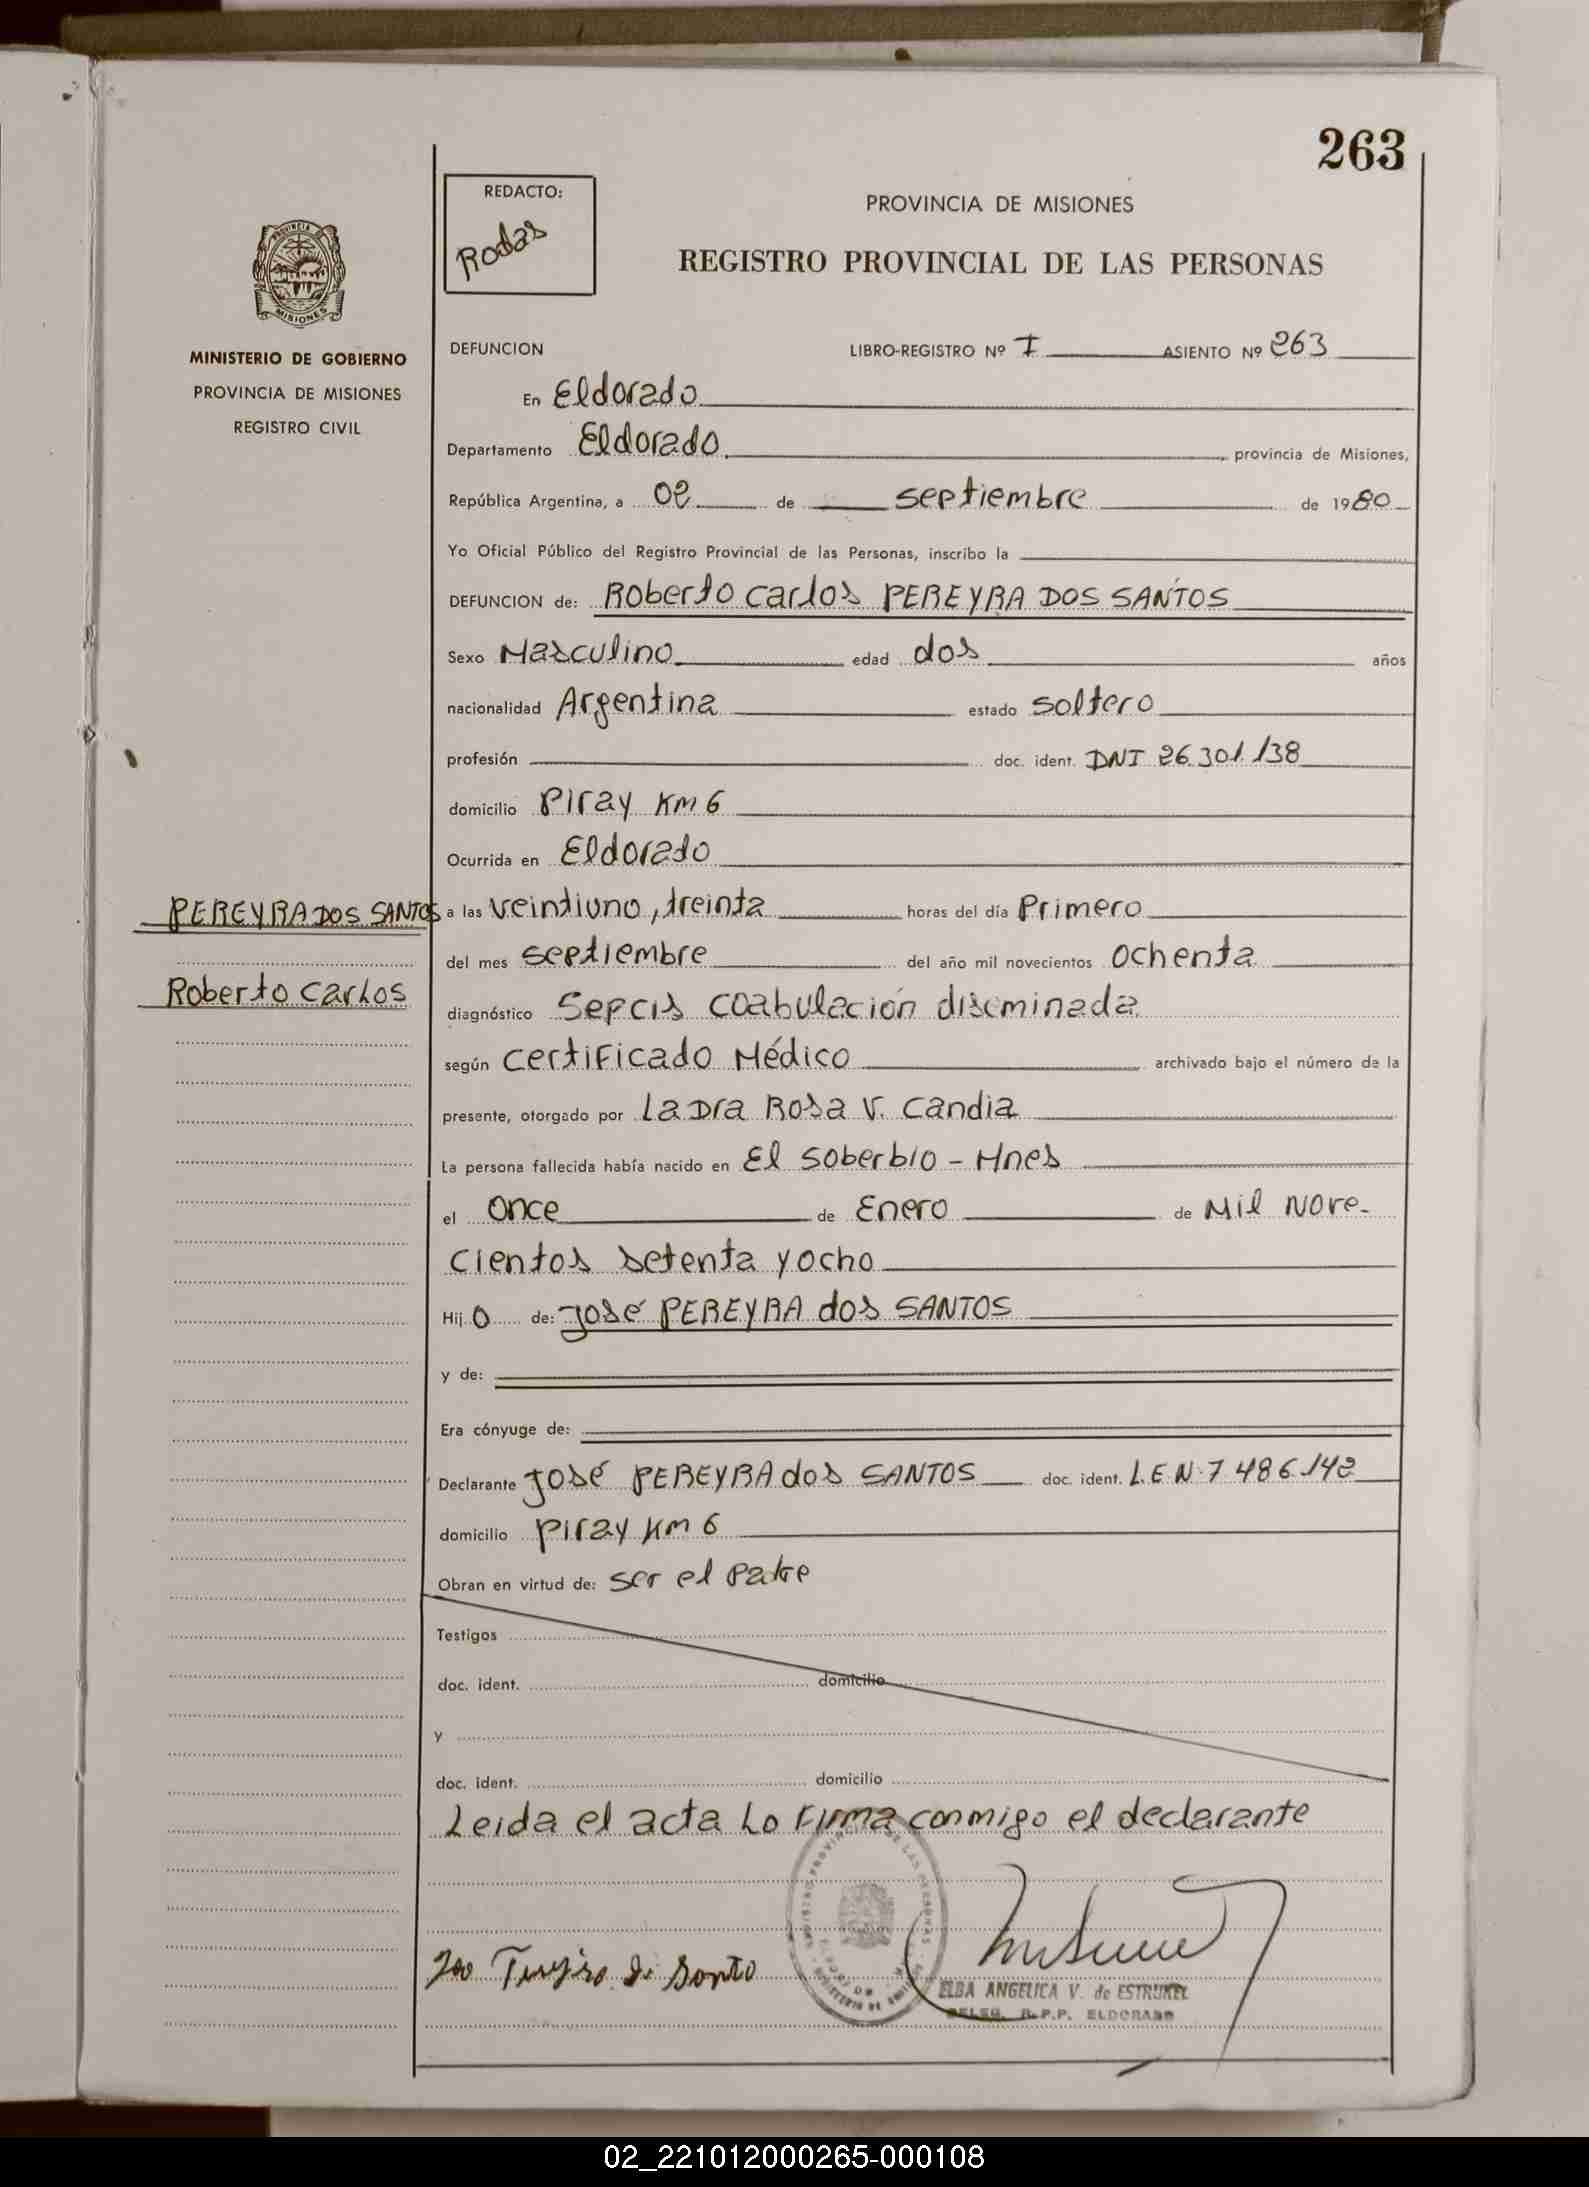 263
REDACTO:
Rodas
PROVINCIA DE MISIONES
REGISTRO PROVINCIAL DE LAS PERSONAS
PROVINCIA DE
MISIONES
MINISTERIO DE GOBIERNO
PROVINCIA DE MISIONES
REGISTRO CIVIL
DEFUNCION LIBRO-REGISTRO Nº I ASIENTO Nº 263
En Eldorado
Departamento Eldorado, provincia de Misiones,
República Argentina, a 02 de septiembre de 1980
Yo Oficial Público del Registro Provincial de las Personas, inscribo la
DEFUNCION de: Roberto Carlos PEREYRA DOS SANTOS
Sexo Masculino edad dos años
nacionalidad Argentina estado soltero
profesión doc. ident. DNI 26.301.138
domicilio Piray Km 6
Ocurrida en Eldorado
a las veintiuno, treinta horas del día Primero
del mes septiembre del año mil novecientos ochenta
diagnóstico Sepcis coabulación diseminada
según certificado Médico archivado bajo el número de la
presente, otorgado por La Dra Rosa V. Candia
La persona fallecida había nacido en El Soberbio - Mnes
el Once de Enero de Mil Nove-
cientos setenta y ocho
Hijo de: José PEREYRA dos SANTOS
y de:
Era cónyuge de:
Declarante José PEREYRA dos SANTOS doc. ident. L.E N. 7.486.142
domicilio Piray Km 6
Obran en virtud de: ser el Padre
Testigos
doc. ident. domicilio
y
doc. ident. domicilio
Leida el acta Lo Firma conmigo el declarante
PEREYRA DOS SANTOS
Roberto Carlos
ELBA ANGELICA V. de ESTRUKEL
DELEG. R.P.P. ELDORADO
02_221012000265-000108